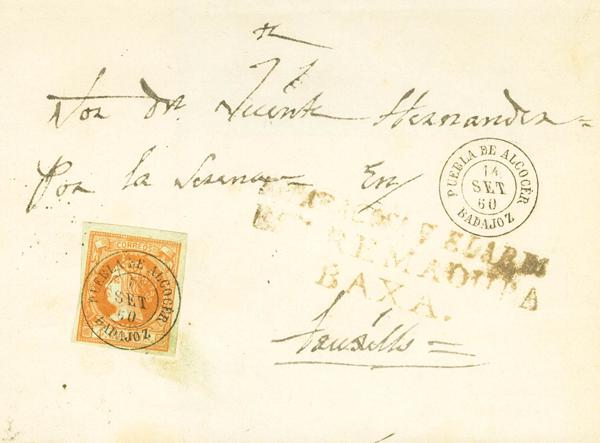 Sor Dn. Vicente Hernandez=
Por la Serena= En
PUEBLA DE ALCOCÉR
14
SET
60
BADAJOZ
EXTREMADURA
BAXA.
CORREOS
PUEBLA DE ALCOCÉR
SET
60
BADAJOZ
Truxillo=